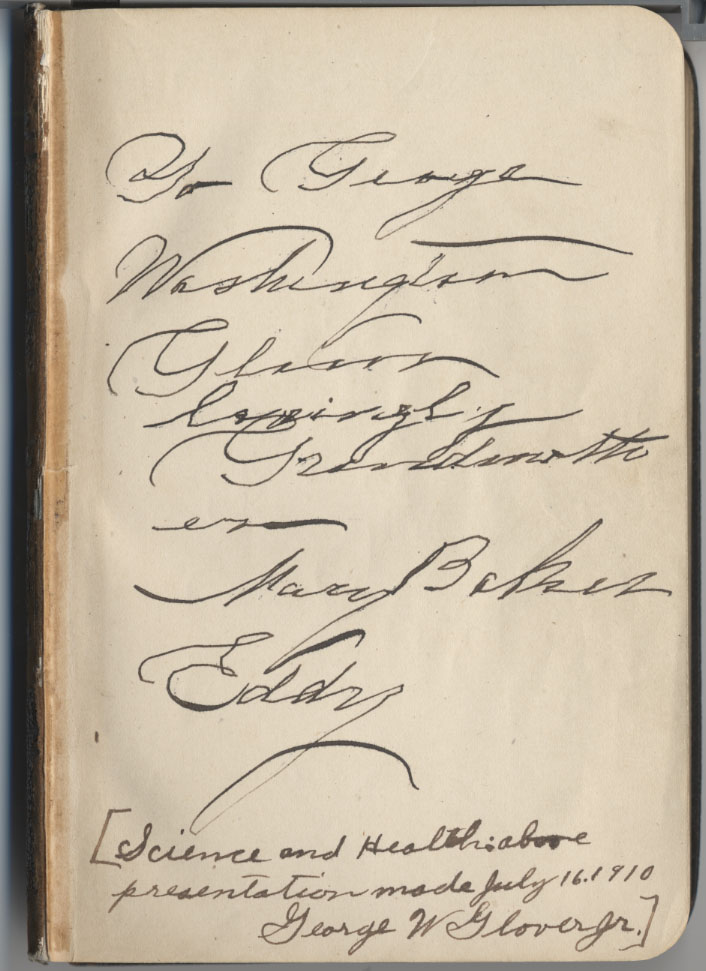 To George
Washington
Glover
lovingly
Grandmoth
er
Mary Baker
Eddy
[Science and Health: above
presentation made July 16.1910
George W Glover Jr.]